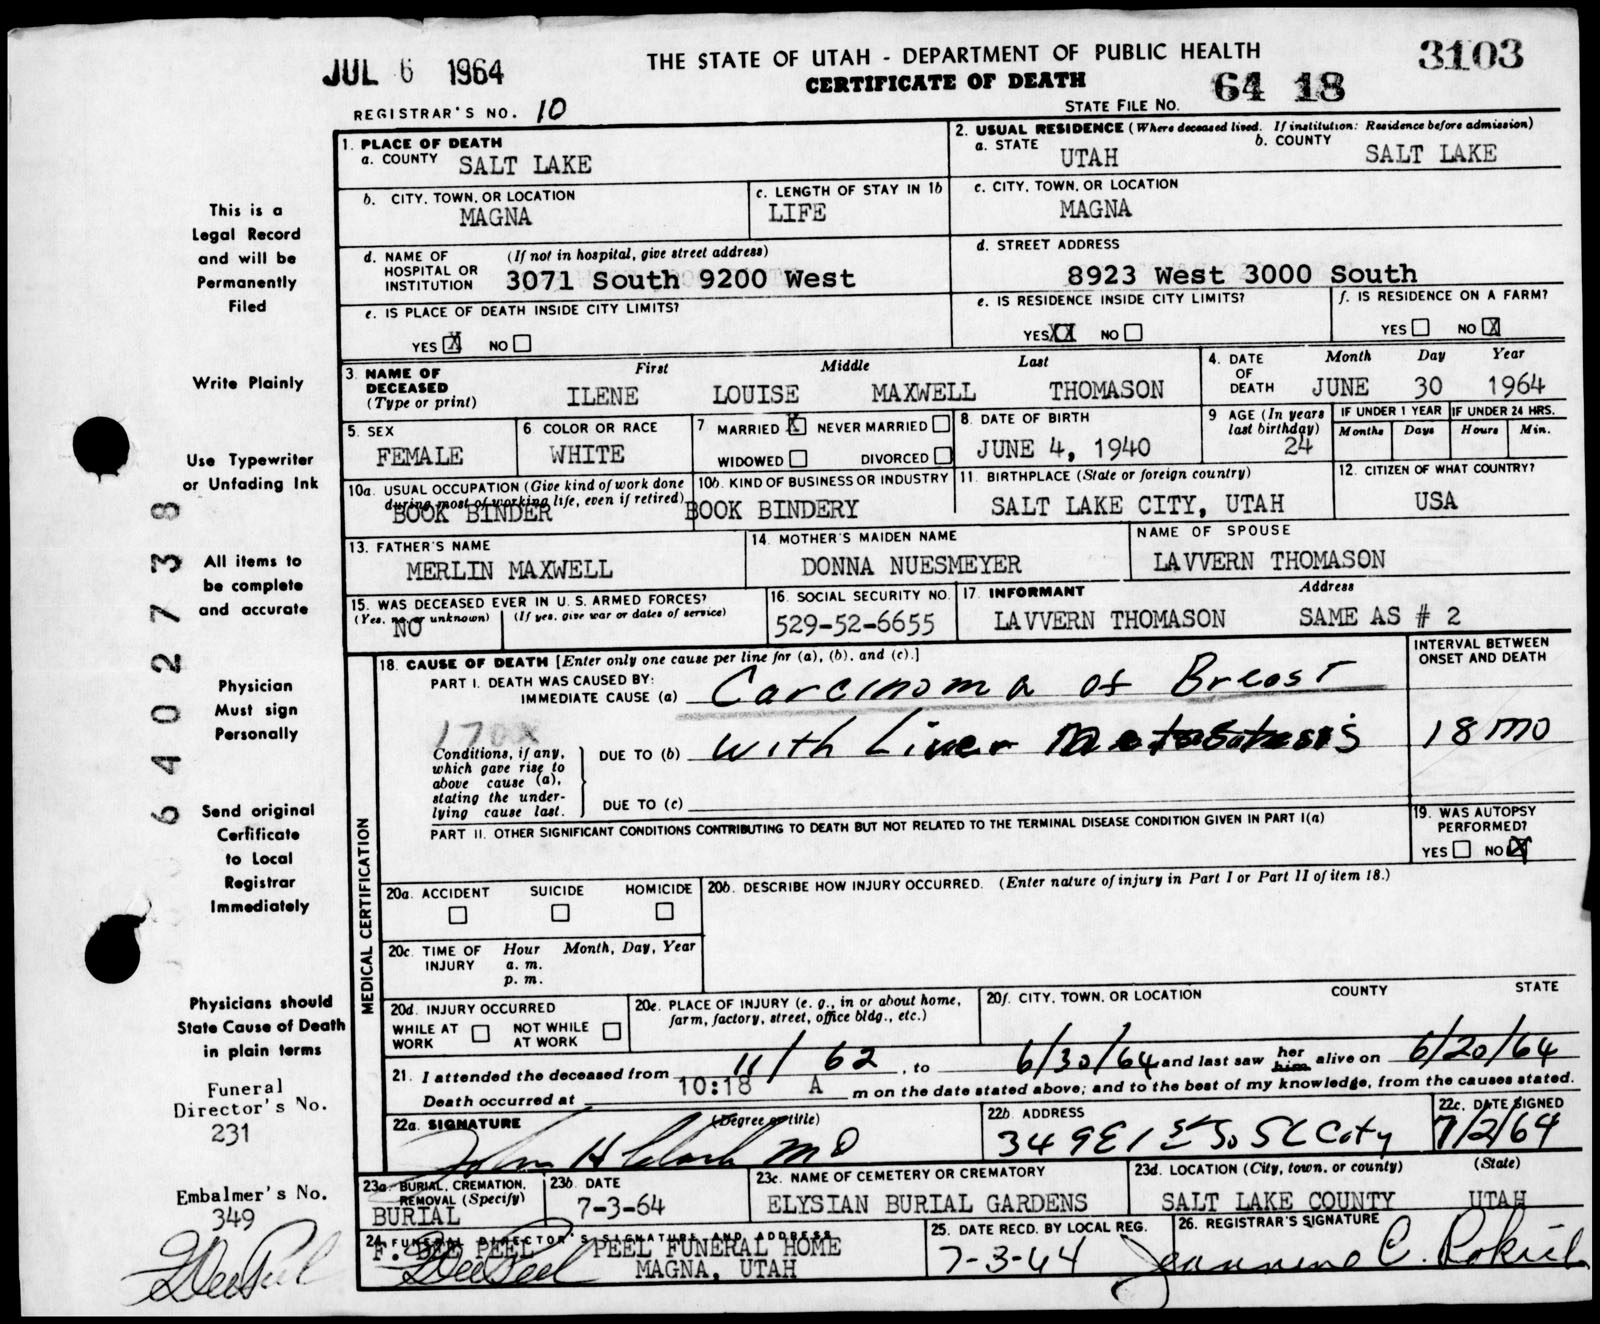 JUL 6 1964
THE STATE OF UTAH - DEPARTMENT OF PUBLIC HEALTH
3103
CERTIFICATE OF DEATH
REGISTRAR'S NO. 10
STATE FILE NO. 64 18
This is a
Legal Record
and will be
Permanently
Filed
Write Plainly
Use Typewriter
or Unfading Ink
All items to
be complete
and accurate
Physician
Must sign
Personally
Send original
Certificate
to Local
Registrar
Immediately
Physicians should
State Cause of Death
in plain terms
Funeral
Director's No.
231
Embalmer's No.
349
64027738
1. PLACE OF DEATH
a. COUNTY SALT LAKE
2. USUAL RESIDENCE (Where deceased lived. If institution: Residence before admission)
a. STATE UTAH b. COUNTY SALT LAKE
b. CITY, TOWN, OR LOCATION
MAGNA
c. LENGTH OF STAY IN 1b
LIFE
c. CITY, TOWN, OR LOCATION
MAGNA
d. NAME OF HOSPITAL OR INSTITUTION (If not in hospital, give street address)
3071 South 9200 West
d. STREET ADDRESS
8923 West 3000 South
e. IS PLACE OF DEATH INSIDE CITY LIMITS?
YES X NO
e. IS RESIDENCE INSIDE CITY LIMITS?
YES XX NO
f. IS RESIDENCE ON A FARM?
YES NO X
3. NAME OF DECEASED (Type or print)
First Middle Last
ILENE LOUISE MAXWELL THOMASON
4. DATE OF DEATH
Month Day Year
JUNE 30 1964
5. SEX
FEMALE
6 COLOR OR RACE
WHITE
7 MARRIED X NEVER MARRIED
WIDOWED DIVORCED
8. DATE OF BIRTH
JUNE 4, 1940
9 AGE (In years last birthday)
24
IF UNDER 1 YEAR
Months Days
IF UNDER 24 HRS.
Hours Min.
10a. USUAL OCCUPATION (Give kind of work done during most of working life, even if retired)
BOOK BINDER
10b. KIND OF BUSINESS OR INDUSTRY
BOOK BINDERY
11. BIRTHPLACE (State or foreign country)
SALT LAKE CITY, UTAH
12. CITIZEN OF WHAT COUNTRY?
USA
13. FATHER'S NAME
MERLIN MAXWELL
14. MOTHER'S MAIDEN NAME
DONNA NUESMEYER
NAME OF SPOUSE
LAVVERN THOMASON
15. WAS DECEASED EVER IN U.S. ARMED FORCES?
(Yes, no or unknown) (If yes, give war or dates of service)
NO
16. SOCIAL SECURITY NO.
529-52-6655
17. INFORMANT Address
LAVVERN THOMASON SAME AS # 2
MEDICAL CERTIFICATION
18. CAUSE OF DEATH [Enter only one cause per line for (a), (b), and (c).]
INTERVAL BETWEEN ONSET AND DEATH
PART I. DEATH WAS CAUSED BY:
IMMEDIATE CAUSE (a) Carcinoma of Breast
170X
Conditions, if any, which gave rise to above cause (a), stating the underlying cause last.
DUE TO (b) with Liver Metastasis 18 mo
DUE TO (c)
PART II. OTHER SIGNIFICANT CONDITIONS CONTRIBUTING TO DEATH BUT NOT RELATED TO THE TERMINAL DISEASE CONDITION GIVEN IN PART I(a)
19. WAS AUTOPSY PERFORMED?
YES NO X
20a. ACCIDENT SUICIDE HOMICIDE
20b. DESCRIBE HOW INJURY OCCURRED. (Enter nature of injury in Part I or Part II of item 18.)
20c. TIME OF INJURY Hour Month, Day, Year
a. m.
p. m.
20d. INJURY OCCURRED
WHILE AT WORK NOT WHILE AT WORK
20e. PLACE OF INJURY (e. g., in or about home, farm, factory, street, office bldg., etc.)
20f. CITY, TOWN, OR LOCATION COUNTY STATE
21. I attended the deceased from 11/62, to 6/30/64 and last saw her him alive on 6/20/64
Death occurred at 10:18 A m on the date stated above; and to the best of my knowledge, from the causes stated.
22a. SIGNATURE (Degree or title)
John H Clark MD
22b. ADDRESS
349 E 1st So SL City
22c. DATE SIGNED
7/2/64
23a. BURIAL, CREMATION, REMOVAL (Specify)
BURIAL
23b. DATE
7-3-64
23c. NAME OF CEMETERY OR CREMATORY
ELYSIAN BURIAL GARDENS
23d. LOCATION (City, town, or county) (State)
SALT LAKE COUNTY UTAH
24. FUNERAL DIRECTOR'S SIGNATURE AND ADDRESS
F. DEE PEEL PEEL FUNERAL HOME
MAGNA, UTAH
25. DATE RECD. BY LOCAL REG.
7-3-64
26. REGISTRAR'S SIGNATURE